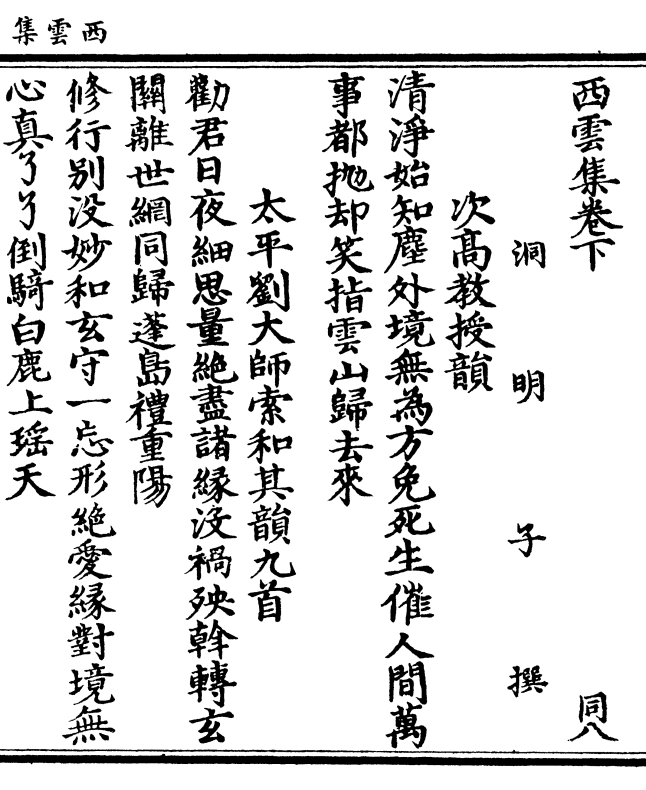 西雲集
西雲集卷下 同八
洞明子撰
次高教授韻
清淨始知塵外境無為方免死生催人間萬
事都抛却笑指雲山歸去來
太平劉大師索和其韻九首
勸君日夜細思量絶盡諸緣没禍殃斡轉玄
關離世網同歸蓬島禮重陽
修行别没妙和玄守一忘形絶愛緣對境無
心真了了倒騎白鹿上瑶天